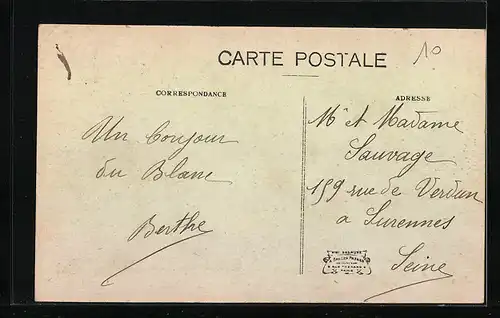 CARTE POSTALE
10
CORRESPONDANCE
ADRESSE
Un bonjour
du Blanc
Berthe
Mr et Madame
Sauvage
159 rue de Verdun
a Surennes
Seine